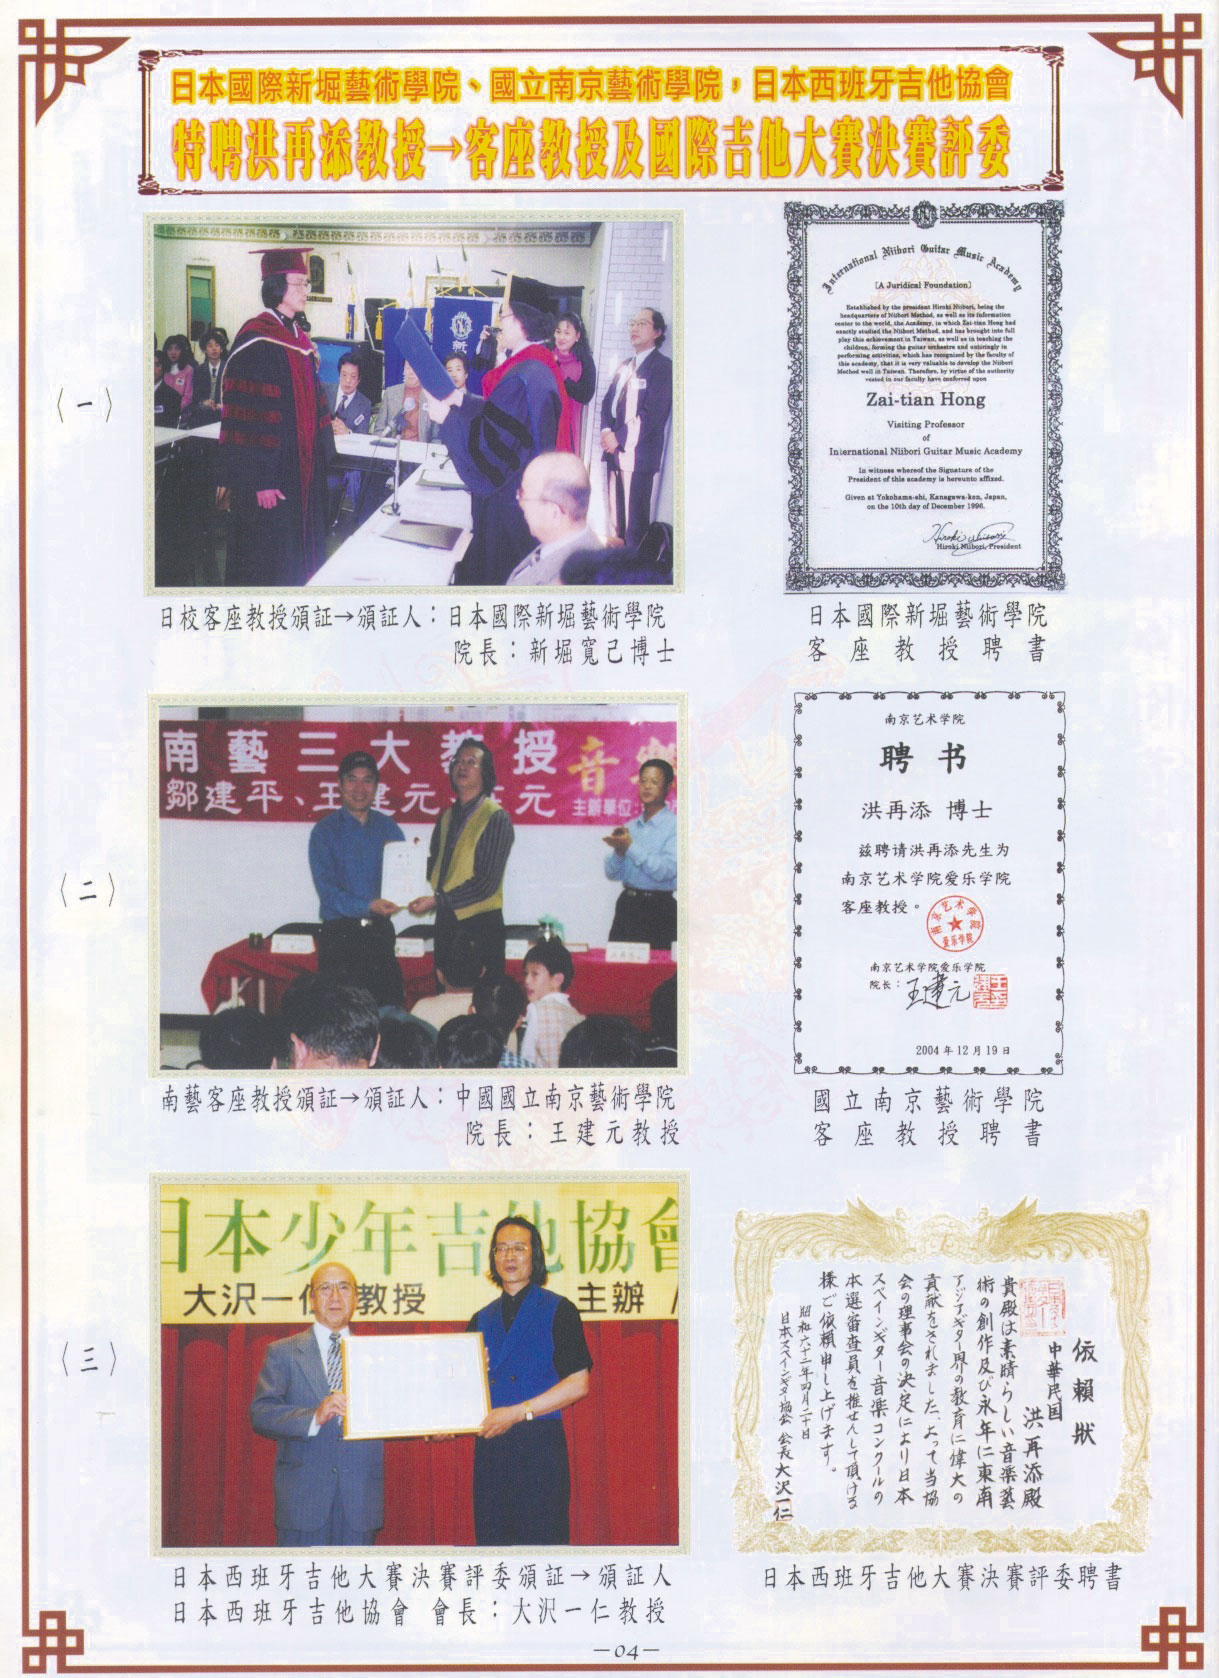 日本國際新堀藝術學院、國立南京藝術學院，日本西班牙吉他協會
特聘洪再添教授→客座教授及國際吉他大賽決賽評委
〈一〉
新
International Niibori Guitar Music Academy
[A Juridical Foundation]
Established by the president Hiroki Niibori, being the
headquarters of Niibori Method, as well as its information
center to the world, the Academy, in which Zai-tian Hong had
exactly studied the Niibori Method, and has brought into full
play this achievement in Taiwan, as well as in teaching the
children, forming the guitar orchestra and untiringly in
performing activities, which has recognized by the faculty of
this academy, that it is very valuable to develop the Niibori
Method well in Taiwan. Therefore, by virtue of the authority
vested in our faculty have conferred upon
Zai-tian Hong
Visiting Professor
of
International Niibori Guitar Music Academy
In witness whereof the Signature of the
President of this academy is hereunto affixed.
Given at Yokohama-shi, Kanagawa-ken, Japan,
on the 10th day of December 1996.
Hiroki Niibori, President
日校客座教授頒証→頒証人：日本國際新堀藝術學院
院長：新堀寬己博士
日本國際新堀藝術學院
客座教授聘書
〈二〉
南藝三大教授 音樂
鄒建平、王建元、 元
主辦單位：
南京艺术学院
聘书
洪再添 博士
兹聘请洪再添先生为
南京艺术学院爱乐学院
客座教授。
南京艺术学院
爱乐学院
南京艺术学院爱乐学院
院长：王建元
2004年12月19日
南藝客座教授頒証→頒証人：中國國立南京藝術學院
院長：王建元教授
國立南京藝術學院
客座教授聘書
〈三〉
日本少年吉他協會
大沢一仁教授 主辦
依賴狀
中華民国
洪再添殿
貴殿は素晴らしい音楽芸
術の創作及び永年に東南
アジアギター界の教育に偉大の
貢献をされました、よって当協
会の理事会の決定により日本
スペインギター音楽コンクールの
本選審査員を推せんして頂ける
様ご依頼申し上げます。
昭和六十二年四月二十日
日本スペインギター協会 会長大沢一仁
日本西班牙吉他大賽決賽評委頒証→頒証人
日本西班牙吉他協會 會長：大沢一仁教授
日本西班牙吉他大賽決賽評委聘書
—04—